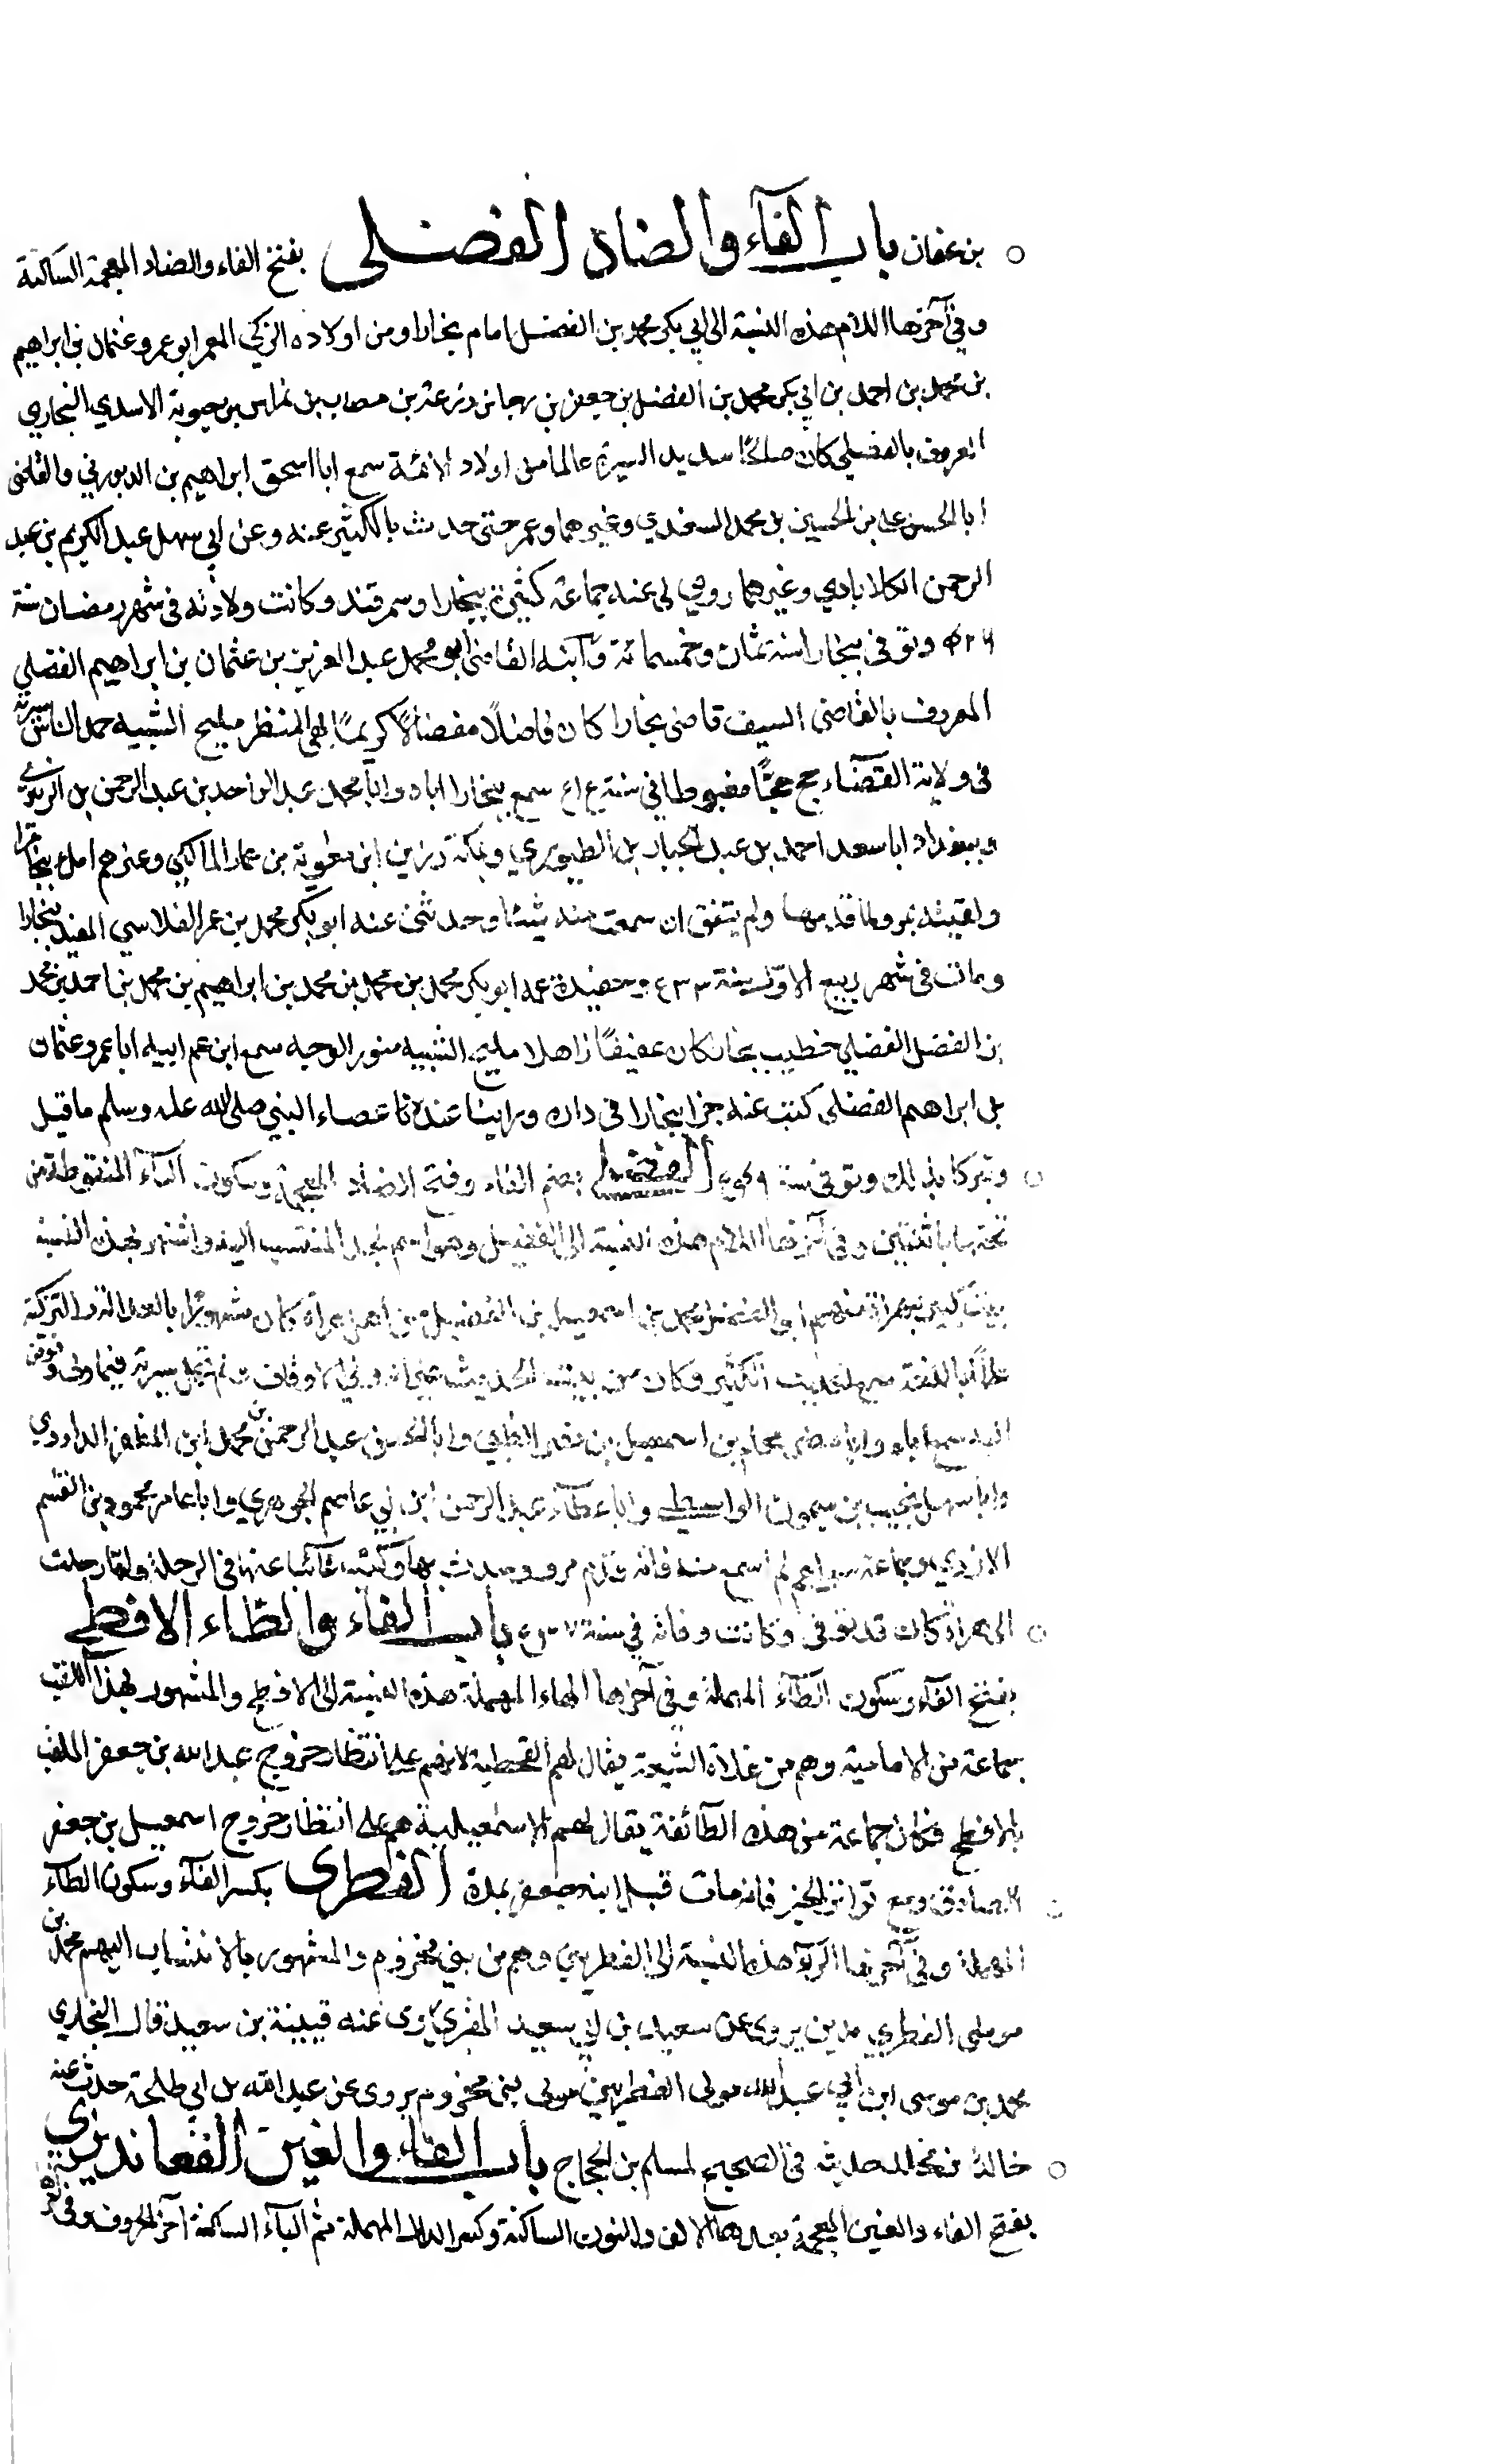 بن عفان باب الفآء والضاد الفضلي بفتح الفاء والضاد المعجمة الساكنة
وفي آخرها اللام هذه النسبة الى ابي بكر محمد بن الفضل امام بخارا ومن اولاده الزكي المعمر ابو عمرو عثمان بن ابراهيم
بن محمد بن احمد بن ابي بكر محمد بن الفضل بن جعفر بن رجا بن زرعة بن الاسدي البخاري
المعروف بالفضلي كان صالحًا سديد السيرة عالما من اولاد الائمة سمع ابا اسحق ابراهيم بن والقاضى
ابا الحسن على بن الحسين بن محمد السغدي وغيرهما وعمر حتى حدث بالكثير عنه وعن ابي سهل عبد الكريم بن عبد
الرحمن الكلاباذي وغيرهما روى لى عنه جماعة كثيرة ببخارا وسمرقند وكانت ولادته في شهر رمضان سنة
وتوفى ببخارا سنة ثمان وخمسمائة وآبنه القاضى ابو محمد عبد العزيز بن عثمان بن ابراهيم الفضلي
المعروف بالقاضى السيف قاضى بخارا كان فاضلًا مفضالًا كريمًا بهي المنظر مليح الشيبة حمد الناس سيرته
فى ولاية القضآء حج حجًا في سنة سمع ببخارا اباه وابا محمد عبد الواحد بن عبد الرحمن بن الزبيري
وببغداد ابا سعد احمد بن عبد الجبار بن الطيوري وبمكة رزين ابن معوية بن عمار المالكي وغيرهم املى ببخارا
ولقيته بمرو لما قدمها ولم يتفق ان سمعت منه شيئا وحدثنى عنه ابو بكر محمد بن عمر القلاسي المفيد ببخارا
ومات فى شهر ربيع الاول سنة ٤٣٣ وحفيدة عمه ابو بكر محمد بن محمد بن محمد بن ابراهيم بن محمد بن احمد بن محمد
بن الفضل الفضلي خطيب بخارا كان عفيفًا زاهدا مليح الشيبة منور الوجه سمع ابن عم ابيه ابا عمرو عثمان
بن ابراهيم الفضلى كتبت عنه جزا ببخارا فى داره وراينا عنده عصاء النبي صلى الله عليه وسلم ما قيل
وتبركنا بذلك وتوفى سنة الفضيلي بضم الفاء وفتح الضاد المعجمة وسكون اليآء المنقوطة من
تحتها باثنتين وفى آخرها اللام هذه النسبة الى الفضيل وهو اسم لجد المنتسب اليه واشتهر بهذه النسبة
بيت كبير بهراة منهم ابو الفضل محمد بن اسمعيل بن الفضيل من اهل هراة كان مشهورًا بالعدالة والتزكية
عالمًا باللغة سمع الحديث الكثير وكان من بيت الحديث
اليه سمع اباه وابا مضر محلم بن اسمعيل بن مضر الضبي وابا الحسن عبد الرحمن بن محمد ابن المظفر الداودي
وابا سهل نجيب بن ميمون الواسطي وابا عطآء عبد الرحمن ابن ابي عاصم الجوهري وابا عامر محمود بن القسم
الازدي وجماعة سواهم لم اسمع منه فانه قدم مرو وحدث بها وكنت غائبا عنها في الرحلة ولما رحلت
الى هراة كان قد توفى وكانت وفاته في سنة باب الفآء والطاء الافطحي
بفتح الفآء وسكون الطآء المهملة وفى آخرها الحاء المهملة هذه النسبة الى الافطح والمشهور بهذا اللقب
جماعة من الامامية وهم من غلاة الشيعة يقال لهم الفطحية لانهم على انتظار خروج عبد الله بن جعفر الملقب
بالافطح فكان جماعة من هذه الطآئفة يقال لهم الاسمعيلية هم على انتظار خروج اسمعيل بن جعفر
الصادق ومع تواتر الخبر فانه مات قبل ابيه جعفر بمدة الفطرى بكسر الفآء وسكون الطآء
المهملة وفي آخرها الرآء هذه النسبة الى الفطريين وهم من بني مخزوم والمشهور بالانتساب اليهم محمد بن
موسى الفطري مديني يروى عن سعيد بن ابي سعيد المقبري روى عنه قتيبة بن سعيد قال البخاري
محمد بن موسى ابن ابي عبد الله مولى الفطريين مولى بنى مخزوم يروى عن عبد الله بن ابي طلحة حدث عنه
خالد بن مخلد حديثه فى الصحيح لمسلم بن الحجاج باب الفاء والغين الفغانديزي
بفتح الفاء والغين المعجمة بعدهما الالف والنون الساكنة وكسر الدال المهملة ثم اليآء الساكنة آخر الحروف وفى